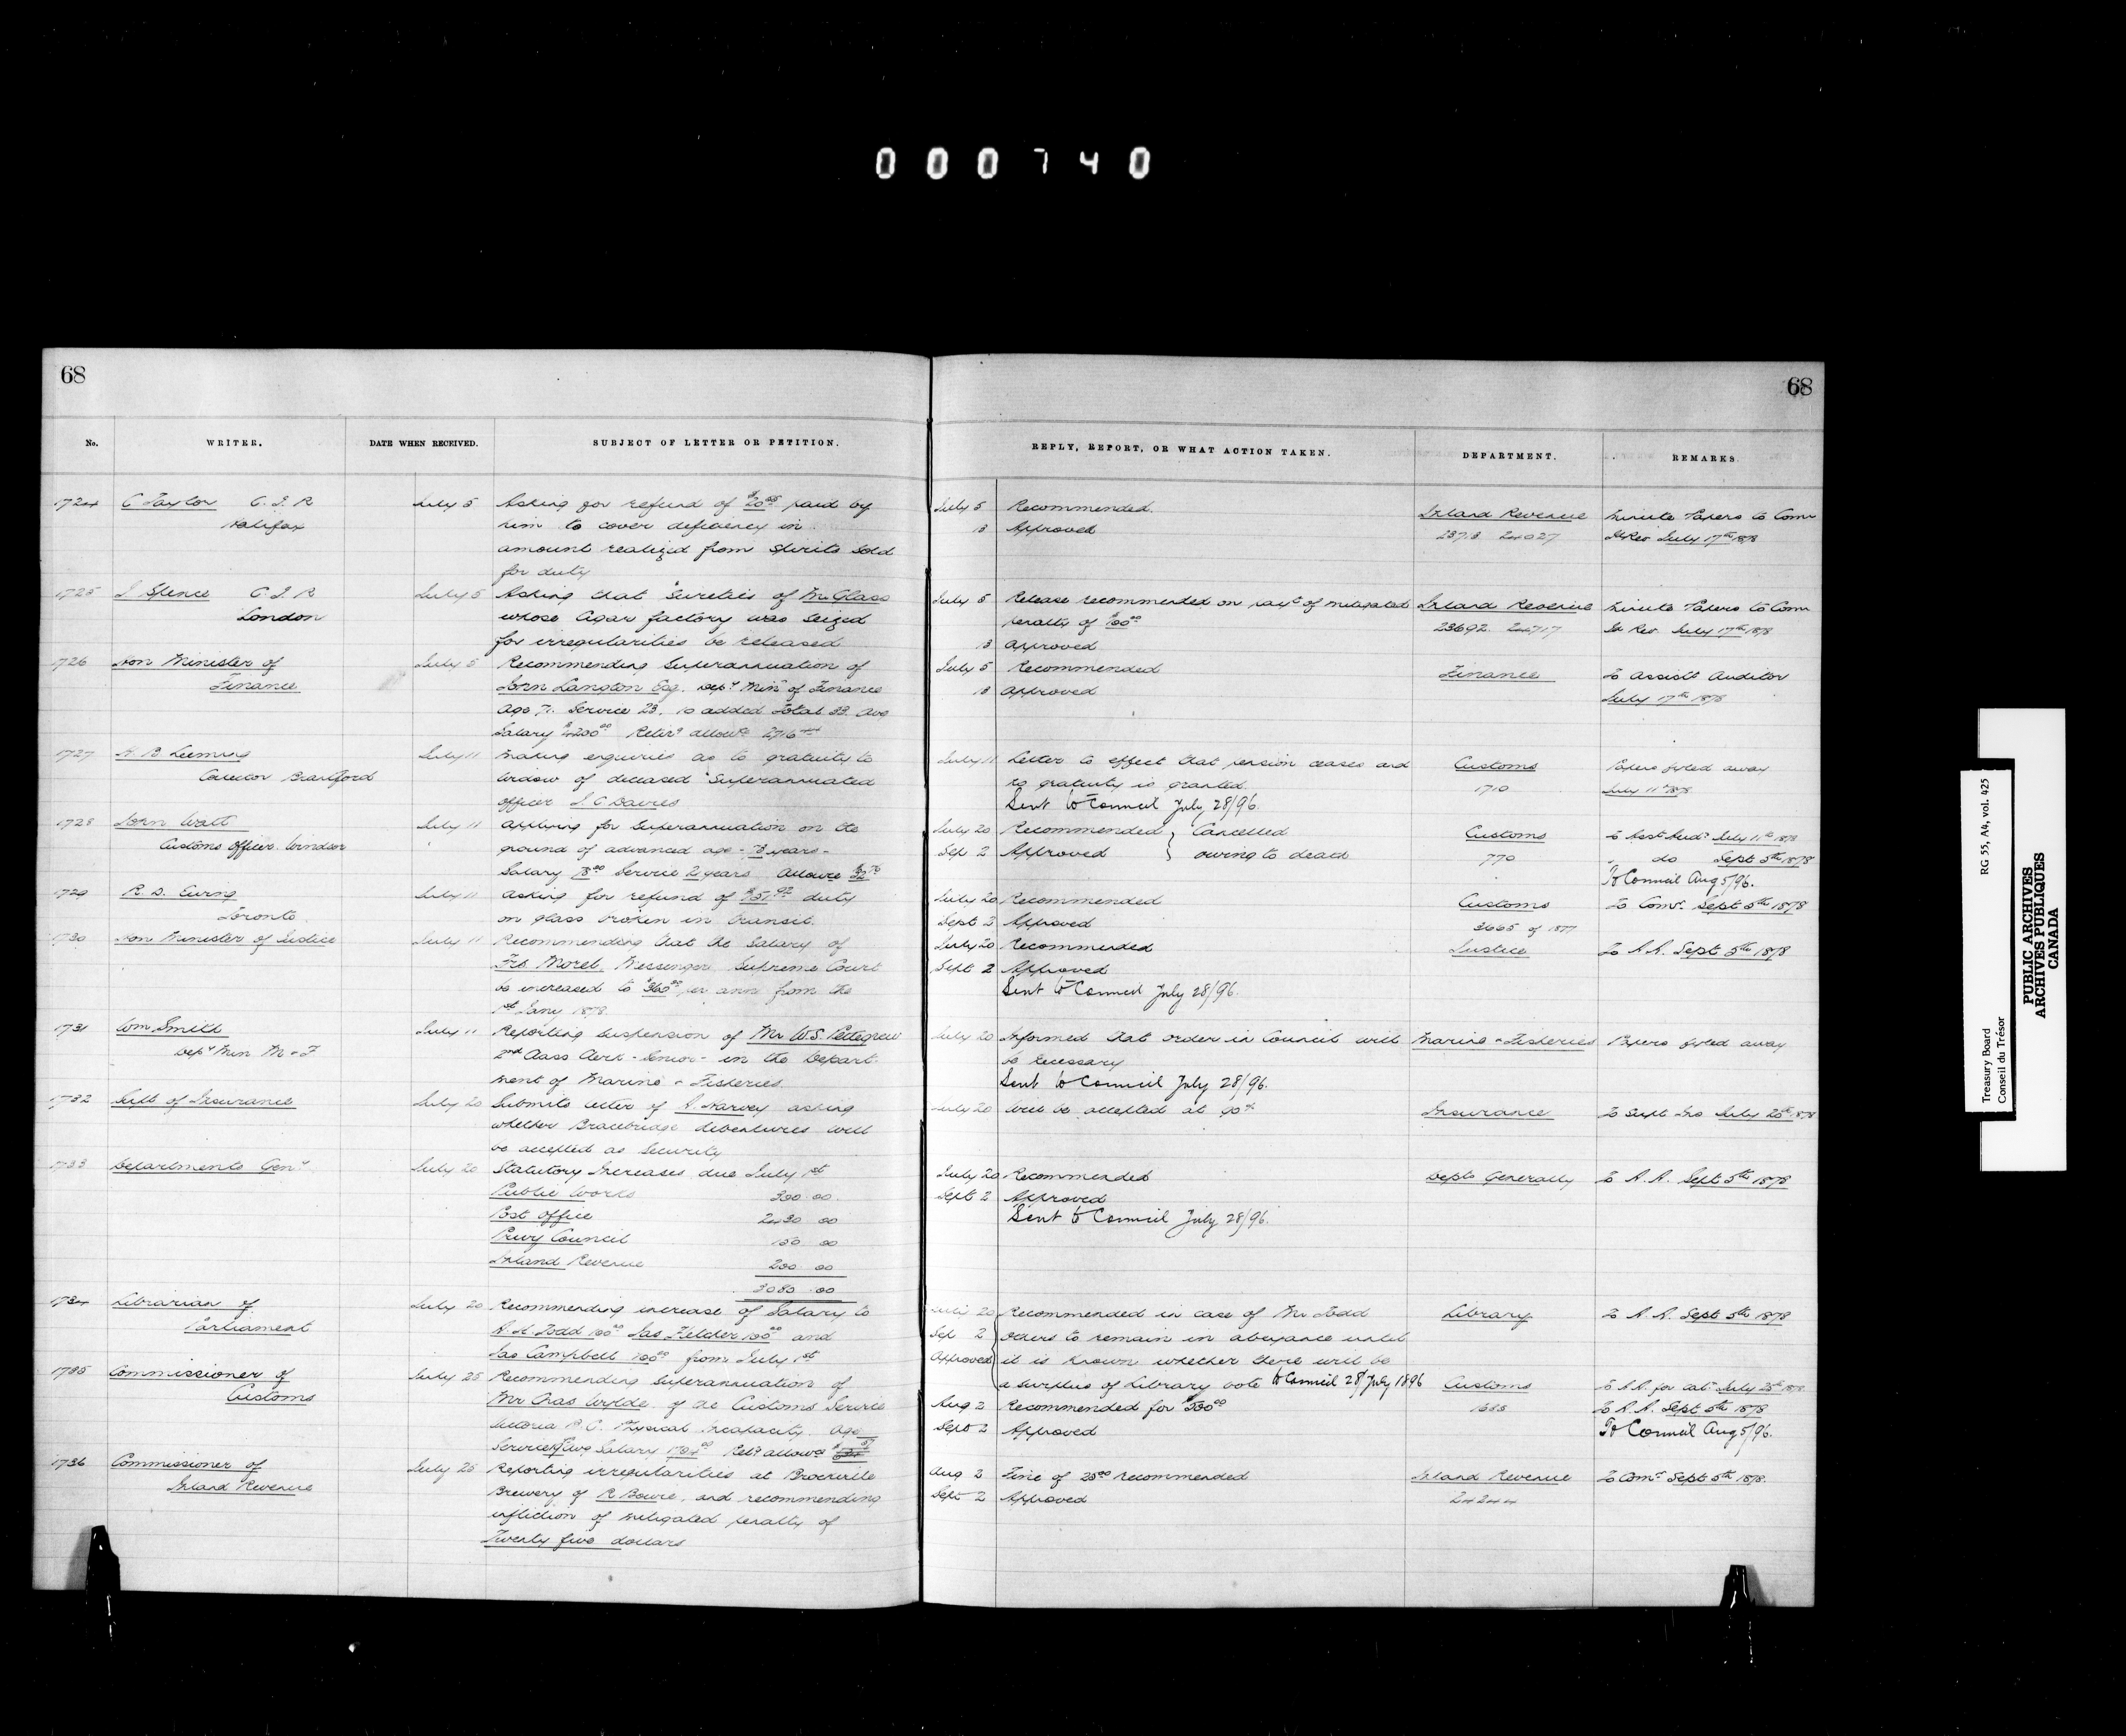 000740
68
No. WRITER. DATE WHEN RECEIVED. SUBJECT OF LETTER OR PETITION.
1724 C Taylor C. I. R July 5 Asking for refund of $20 05 paid by
Halifax him to cover deficiency in
amount realized from spirits sold
for duty
1725 J. Spence C. I. R July 5 Asking that Sureties of McGlass
London whose Cigar factory was seized
for irregularities be released
1726 Hon Minister of July 5 Recommending Superannuation of
Finance John Langton Esq. Depy Minr of Finance
Age 71. Service 23. 10 added Total 33. Ave
Salary $4200 00 Retirg allowce 2716
1727 H. B Leeming July 11 Making enquiries as to gratuity to
Collector Brantford widow of deceased Superannuated
officer J. C Davies
1728 John Watt July 11 applying for Superannuation on the
Customs Officer. Windsor ground of advanced age - 73 years -
Salary 78 00 Service 21 years Allowce 32 76
1729 R. D. Ewing July 11 asking for refund of $57 92 duty
Toronto on glass broken in transit.
1730 Hon Minister of Justice July 11 Recommending that the Salary of
Frs Morel. Messenger Supreme Court
be increased to $360 00 per ann from the
1st Jany 1878.
1731 Wm Smith July 11 Reporting suspension of Mr W.S. Pettegrew
Depy Min M & F 2nd Class Clerk - Senior - in the Depart-
ment of Marine & Fisheries.
1732 Supt of Insurance July 20 Submits letter of A. Harvey asking
whether Bracebridge debentures will
be accepted as Security
1733 Departments Genly July 20 Statutory Increases due July 1st
Public Works 300 00
Post Office 2430 00
Privy Council 150 00
Inland Revenue 200 00
3080 00
1734 Librarian of July 20 Recommending increase of Salary to
Parliament A. H. Todd 100 00 Jas Fletcher 100 00 and
Jas Campbell 100 00 from July 1st
1735 Commissioner of July 25 Recommending superannuation of
Customs Mr Chas Wylde of the Customs Service
Victoria B. C. Physical Incapacity. Age
Service Ave Salary Retg allowce
1736 Commissioner of July 25 Reporting irregularities at Brockville
Inland Revenue Brewery of R Bowie, and recommending
infliction of mitigated penalty of
Twenty five dollars
68
REPLY, REPORT, OR WHAT ACTION TAKEN. DEPARTMENT. REMARKS.
July 5 Recommended. Inland Revenue Minute Papers to Com
13 Approved 23713 24027 In Rev July 17th 1878
July 5 Release recommended on payt of mitigated Inland Revenue Minute Papers to Com
penalty of 100 00 23692. 24717 In Rev. July 17th 1878
13 Approved
July 5 Recommended Finance To Assistt Auditor
13 approved July 17th 1878
July 11 Letter to effect that pension ceases and Customs Papers fyled away
no gratuity is granted. 1710 July 11th 1878
Sent to Council July 28/96.
July 20 Recommended } Cancelled Customs To Asst Audr July 11th 1878
Sep 2 Approved } owing to death 770 " do Sept 5th 1878
To Council Aug 5/96.
July 20 Recommended Customs To Comr. Sept 5th 1878
Sept 2 Approved 3665 of 1877
July 20 Recommended Justice To A. A. Sept 5th 1878
Sept 2 Approved
Sent to Council July 28/96.
July 20 Informed that order in Council will Marine & Fisheries Papers fyled away
be necessary
Sent to Council July 28/96.
July 20 Will be accepted at 90% Insurance To Supt Ins July 25th 1878
July 20 Recommended Depts Generally To A. A. Sept 5th 1878
Sept 2 Approved
Sent to Council July 28/96.
July 20 Recommended in case of Mr Todd Library To A. A. Sept 5th 1878
Sep 2 others to remain in abeyance until
Approved it is known whether there will be
a surplus of Library vote to Council 28 July 1896 Customs To A.A. for calc July 25th 1878
Aug 2 Recommended for 1685 To A. A. Sept 5th 1878
Sept 2 Approved To Council Aug 5/96.
Aug 2 Fine of 25 00 recommended Inland Revenue To Comr Sept 5th 1878.
Sept 2 Approved 24244
Treasury Board RG 55, A4, vol. 425
Conseil du Trésor
PUBLIC ARCHIVES
ARCHIVES PUBLIQUES
CANADA